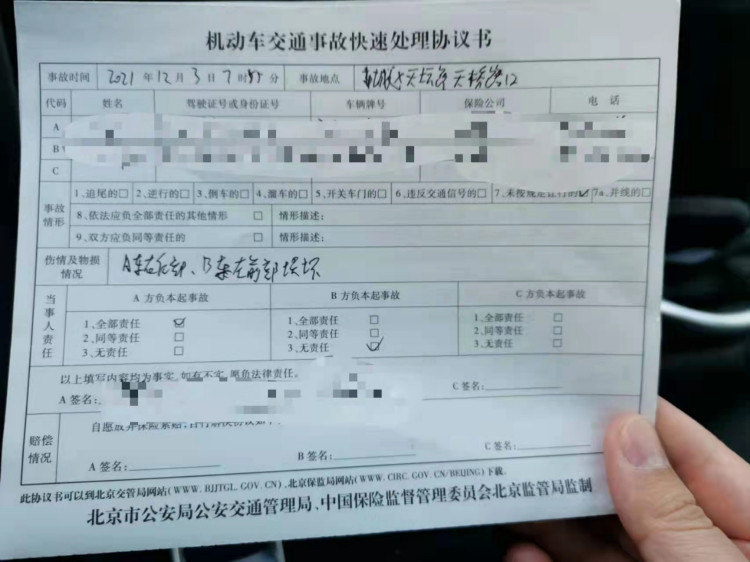 机动车交通事故快速处理协议书
事故时间 2021年12月3日7时55分 事故地点 天桥路口
代码 姓名 驾驶证号或身份证号 车辆牌号 保险公司 电话
A
B
C
事故情形
1、追尾的□ 2、逆行的□ 3、倒车的□ 4、溜车的□ 5、开关车门的□ 6、违反交通信号的□ 7、未按规定让行的☑ 7a、并线的□
8、依法应负全部责任的其他情形 □ 情形描述:
9、双方应负同等责任的 □ 情形描述:
伤情及物损情况 A车右后部、B车左前部损坏
当事人责任
A方负本起事故 B方负本起事故 C方负本起事故
1、全部责任 ☑ 1、全部责任 □ 1、全部责任 □
2、同等责任 □ 2、同等责任 □ 2、同等责任 □
3、无责任 □ 3、无责任 ☑ 3、无责任 □
以上填写内容均为事实,如有不实,愿负法律责任。
A签名: C签名:
赔偿情况
自愿放弃保险索赔,自行解决协议如下:
A签名: B签名: C签名:
此协议书可以到北京交管局网站(WWW.BJJTGL.GOV.CN)、北京保监局网站(WWW.CIRC.GOV.CN/BEIJING)下载。
北京市公安局公安交通管理局、中国保险监督管理委员会北京监管局监制